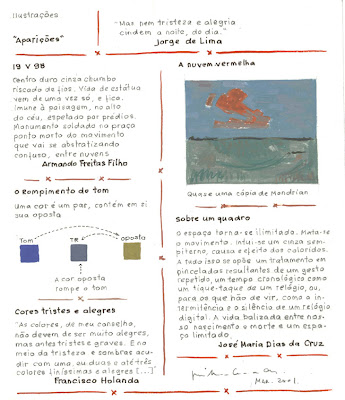 Ilustrações
"Aparições"
"Mas nem tristeza e alegria
cindem a noite, do dia."
Jorge de Lima
19 V 98
Contra duro cinza chumbo
riscado de fios. Vida de estátua
vem de uma vez só, e fica.
Imune à paisagem, no alto
do céu, espetado por prédios.
Monumento soldado na praça
ponto morto do movimento
que vai se abstratizando
confuso, entre nuvens
Armando Freitas Filho
O Rompimento do tom
Uma cor é um par, contém em si
sua oposta
Tom
TR
oposta
A cor oposta
rompe o tom
Cores tristes e alegres
"As colores, de meu conselho,
não devem de ser muito alegres,
mas antes tristes e graves. E no
meio da tristeza e sombras acu-
dir com uma, ou duas e até três
colores liníssimas e alegres [...]"
Francisco Holanda
A nuvem vermelha
Quase uma cópia de Mondrian
Sobre um quadro
O espaço torna-se ilimitado. Mata-se
o movimento. Intui-se um cinza sem-
piterno, causa e efeito dos coloridos.
A tudo isso se opõe um tratamento em
pinceladas resultantes de um gesto
repetido, um tempo cronológico como
um tique-taque de um relógio, ou,
para os que hão de vir, como a in-
termitência e o silêncio de um relógio
digital. A vida balizada entre nos-
so nascimento e morte e um espa-
ço limitado.
José Maria Dias da Cruz
Mar. 2001.